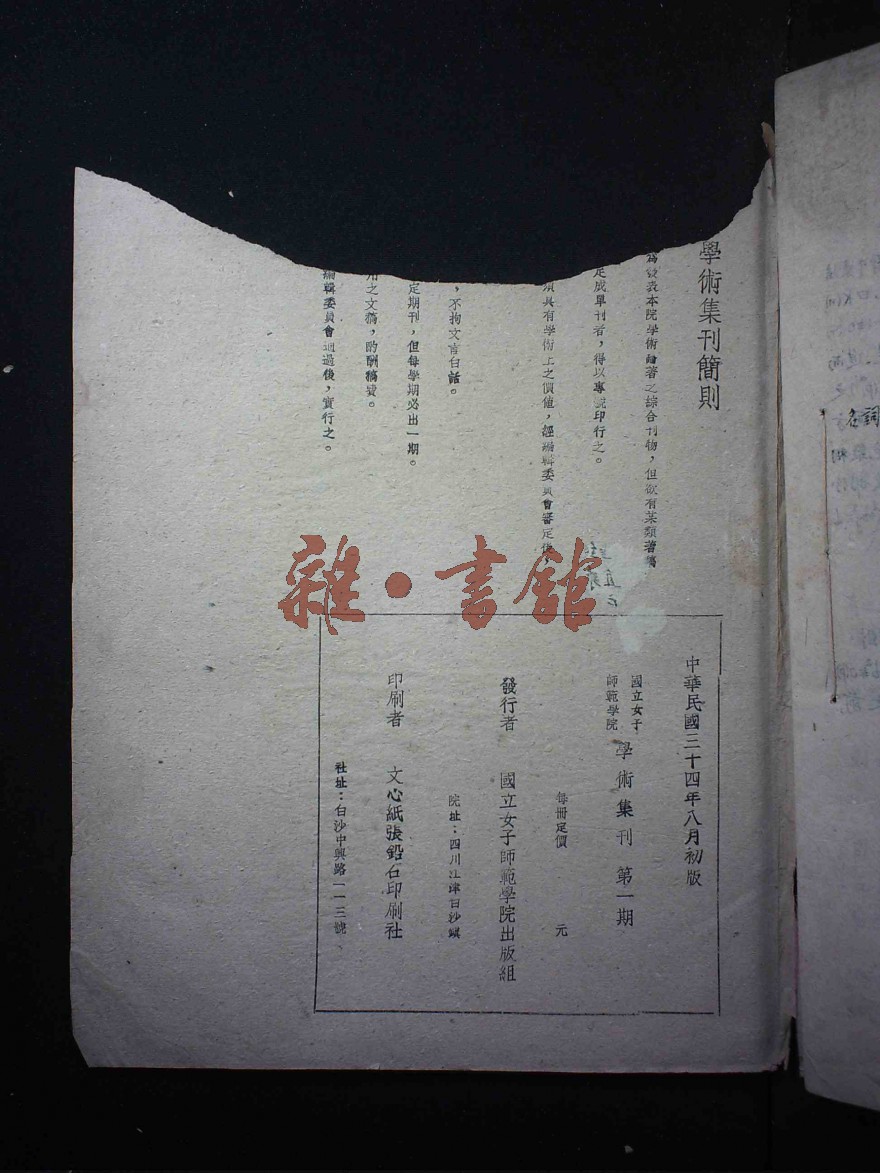 學術集刊簡則
為發表本院學術論著之綜合刊物，但欲有某類著稿
足成單刊者，得以專號印行之。
須具有學術上之價值，經編輯委員會審定後
，不拘文言白話。
定期刊，但每學期必出一期。
用之文稿，酌酬稿費。
編輯委員會通過後，實行之。
雜·書館
中華民國三十四年八月初版
國立女子
師範學院
學術集刊 第一期
每冊定價 元
發行者 國立女子師範學院出版組
院址：四川江津白沙鎮
印刷者 文心紙張鉛石印刷社
社址：白沙中興路一一三號、
名詞